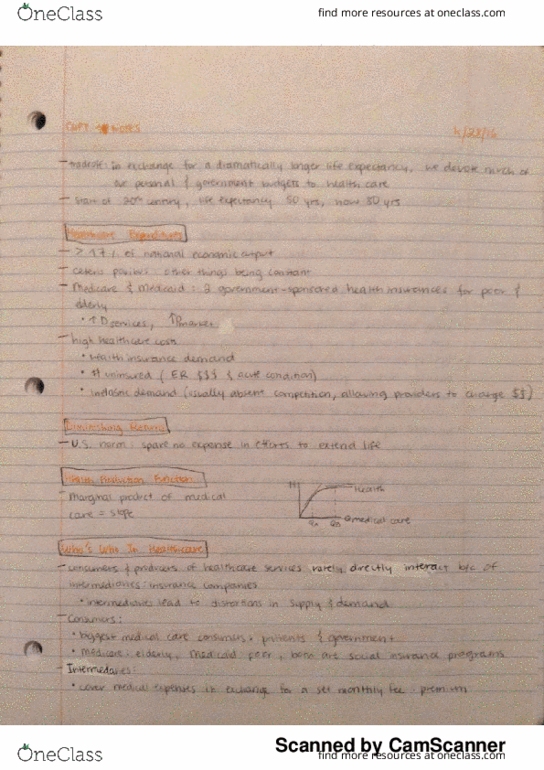 OneClass
find more resources at oneclass.com
NOTES
4/28/16
- tradeoff: in exchange for a dramatically longer life expectancy, we devote much of
our personal & government budgets to health care
- start of 20th century, life expectancy 50 yrs, now 80 yrs
Healthcare Expenditures
- > 17% of national economic output
- ceteris paribus: other things being constant
- Medicare & Medicaid: 2 government-sponsored health insurances for poor &
elderly
• ↑ D services, ↑ P market
- high healthcare costs
• health insurance demand
• uninsured (ER $$$ & acute condition)
• inelastic demand (usually absent competition, allowing providers to charge $$)
Diminishing Returns
- U.S. norm: spare no expense in efforts to extend life
Health Production Function
- Marginal product of medical
care = slope
H
Health
Q medical care
Who's Who In Healthcare
- consumers & producers of healthcare services rarely directly interact b/c of
intermediaries: insurance companies
• intermediaries lead to distortions in supply & demand
- Consumers:
• biggest medical care consumers: patients & government
• medicare: elderly, medicaid: poor, both are social insurance programs
- Intermediaries:
• cover medical expenses in exchange for a set monthly fee: premium
Scanned by CamScanner
OneClass
find more resources at oneclass.com